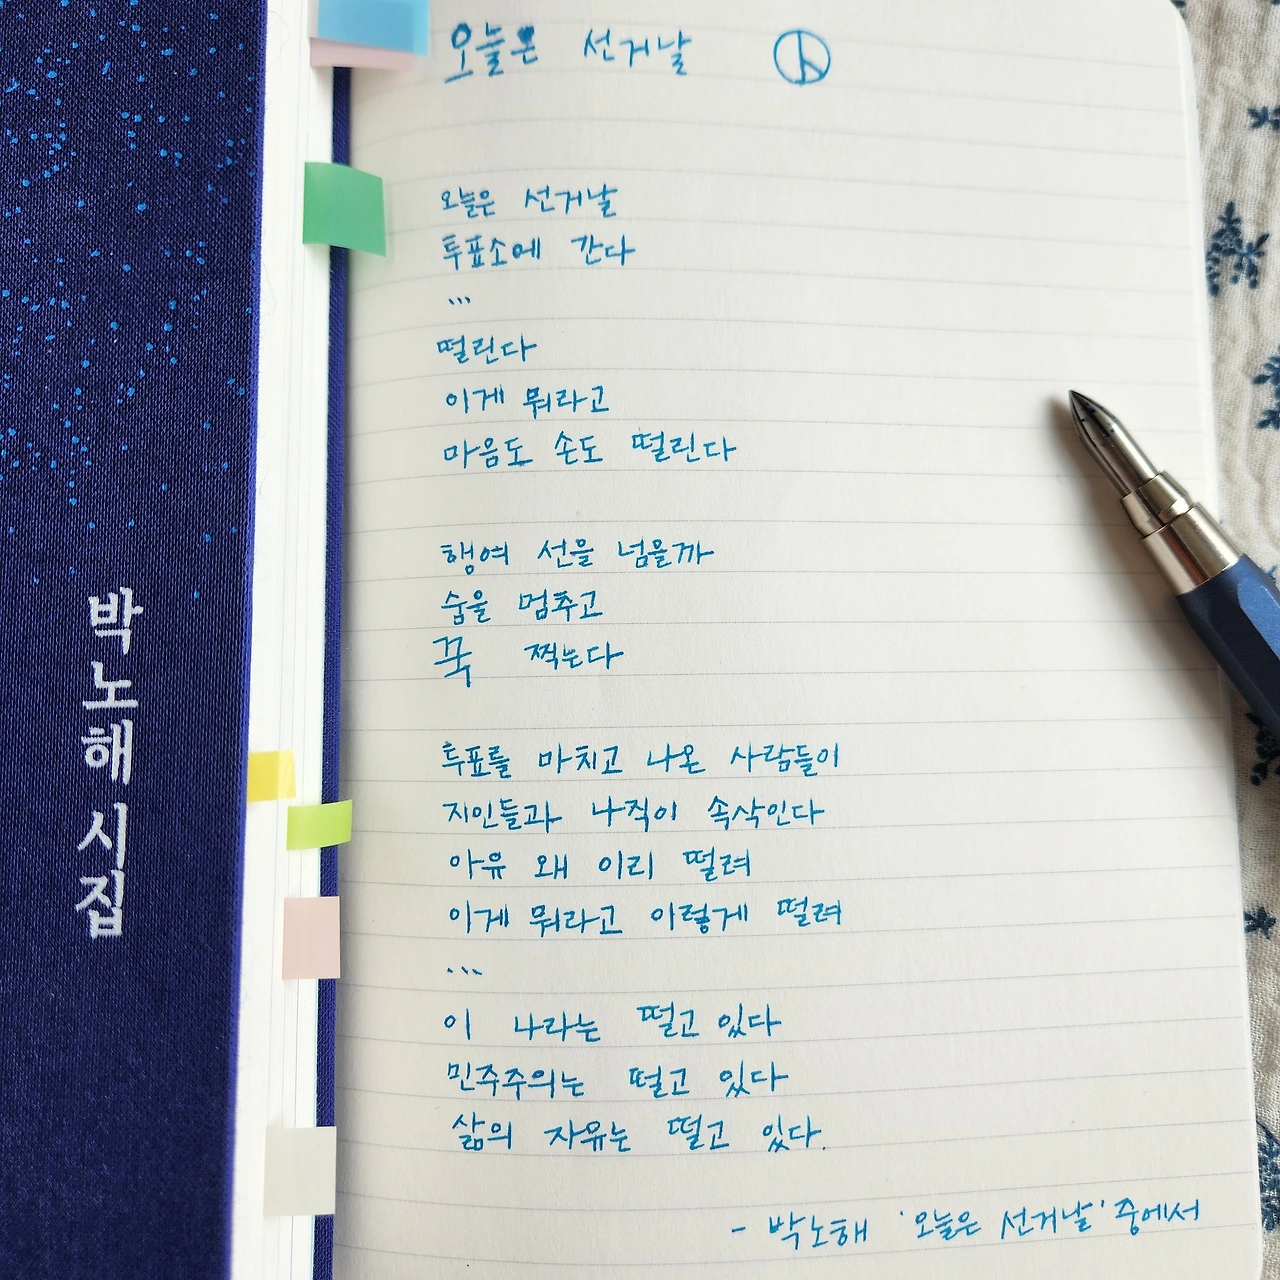 박노해 시집
오늘은 선거날
오늘은 선거날
투표소에 간다
...
떨린다
이게 뭐라고
마음도 손도 떨린다
행여 선을 넘을까
숨을 멈추고
꾹 찍는다
투표를 마치고 나온 사람들이
지인들과 나직이 속삭인다
아유 왜 이리 떨려
이게 뭐라고 이렇게 떨려
...
이 나라는 떨고 있다
민주주의는 떨고 있다
삶의 자유는 떨고 있다.
- 박노해 '오늘은 선거날' 중에서